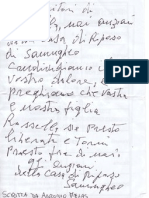 genitori di
noi anziani
della casa di Riposo
di Samugheo
Condividiamo il
vostro dolore, e
preghiamo che vostra
e nostra figlia
Rossella, sia presto
liberata e Torni
Presto fra di noi
gli anziani
della casa di Riposo
Samugheo
SCRITTA DA